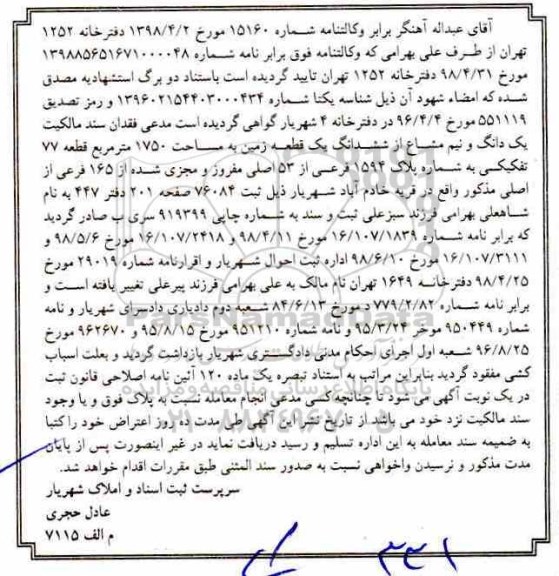 آقای عبداله آهنگر برابر وکالتنامه شماره ۱۵۱۶۰ مورخ ۱۳۹۸/۴/۲ دفترخانه ۱۲۵۲
تهران از طرف علی بهرامی که وکالتنامه فوق برابر نامه شماره ۱۳۹۸۸۵۶۵۱۶۷۱۰۰۰۰۴۸
مورخ ۹۸/۴/۳۱ دفترخانه ۱۲۵۲ تهران تایید گردیده است باستناد دو برگ استشهادیه مصدق
شده که امضاء شهود آن ذیل شناسه یکتا شماره ۱۳۹۶۰۲۱۵۴۴۰۳۰۰۰۴۳۴ و رمز تصدیق
۵۵۱۱۱۹ مورخ ۹۶/۴/۴ در دفترخانه ۴ شهریار گواهی گردیده است مدعی فقدان سند مالکیت
یک دانگ و نیم مشاع از ششدانگ یک قطعه زمین به مساحت ۱۷۵۰ مترمربع قطعه ۷۷
تفکیکی به شماره پلاک ۱۵۹۴ فرعی از ۵۳ اصلی مفروز و مجزی شده از ۱۶۵ فرعی از
اصلی مذکور واقع در قریه خادم آباد شهریار ذیل ثبت ۷۶۰۸۴ صفحه ۲۰۱ دفتر ۴۴۷ به نام
شاهعلی بهرامی فرزند سبزعلی ثبت و سند به شماره چاپی ۹۱۹۳۹۹ سری ب صادر گردید
که برابر نامه شماره ۱۶/۱۰۷/۱۸۳۹ مورخ ۹۸/۴/۱۱ و ۱۶/۱۰۷/۲۴۱۸ مورخ ۹۸/۵/۶ و
۱۶/۱۰۷/۳۱۱۱ مورخ ۹۸/۶/۱۰ اداره ثبت احوال شهریار و اقرارنامه شماره ۲۹۰۱۹ مورخ
۹۸/۴/۲۵ دفترخانه ۱۶۴۹ تهران نام مالک به علی بهرامی فرزند پیرعلی تغییر یافته است و
برابر نامه شماره ۷۷۹/۲/۸۲ د مورخ ۸۴/۶/۱۳ شعبه دوم دادیاری دادسرای شهریار و نامه
شماره ۹۵۰۴۴۹ موخر ۹۵/۳/۲۴ و نامه شماره ۹۵۱۲۱۰ مورخ ۹۵/۸/۱۵ و ۹۶۲۶۷۰ مورخ
۹۶/۸/۲۵ شعبه اول اجرای احکام مدنی دادگستری شهریار بازداشت گردید و بعلت اسباب
کشی مفقود گردید بنابراین مراتب به استناد تبصره یک ماده ۱۲۰ آئین نامه اصلاحی قانون ثبت
در یک نوبت آگهی می شود تا چنانچه کسی مدعی انجام معامله نسبت به پلاک فوق و یا وجود
سند مالکیت نزد خود می باشد از تاریخ نشر این آگهی طی مدت ده روز اعتراض خود را کتبا
به ضمیمه سند معامله به این اداره تسلیم و رسید دریافت نماید در غیر اینصورت پس از پایان
مدت مذکور و نرسیدن واخواهی نسبت به صدور سند المثنی طبق مقررات اقدام خواهد شد.
سرپرست ثبت اسناد و املاک شهریار
عادل حجری
م الف ۷۱۱۵
۳۳۱